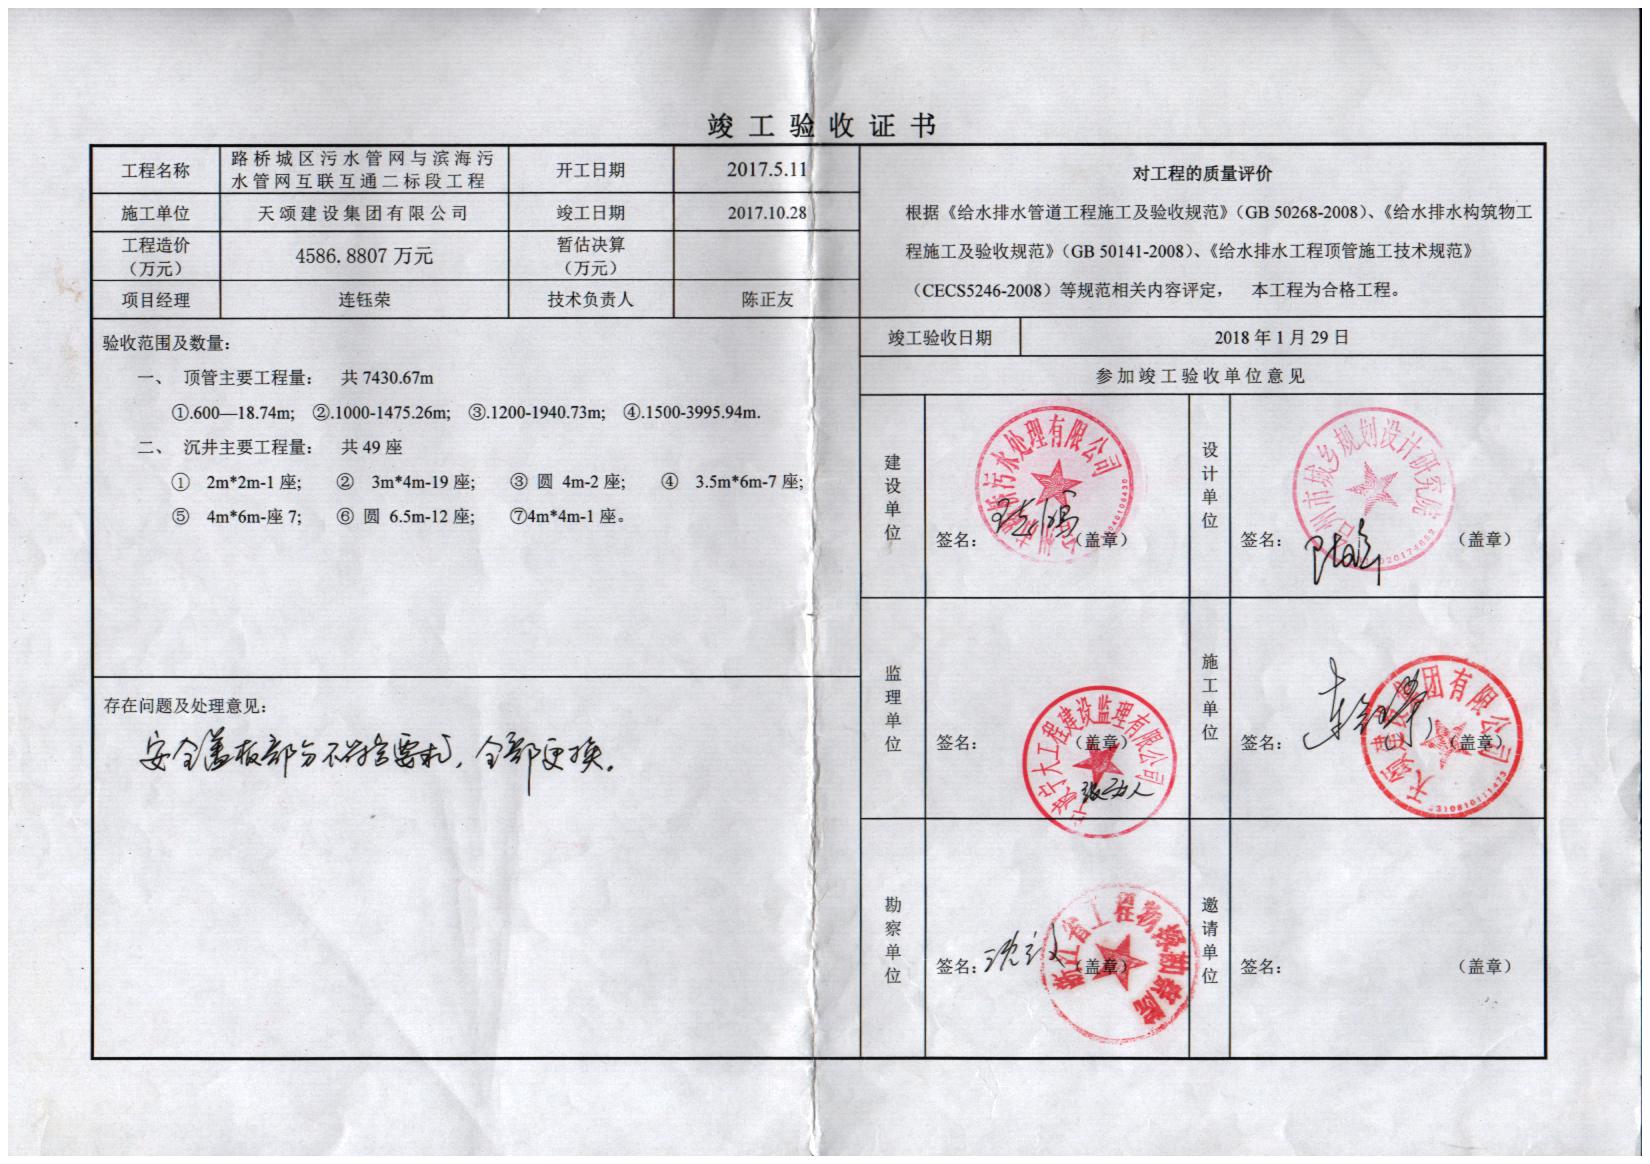 竣工验收证书
工程名称
路桥城区污水管网与滨海污
水管网互联互通二标段工程
开工日期
2017.5.11
施工单位
天颂建设集团有限公司
竣工日期
2017.10.28
工程造价
（万元）
4586.8807 万元
暂估决算
（万元）
项目经理
连钰荣
技术负责人
陈正友
验收范围及数量：
一、 顶管主要工程量： 共 7430.67m
①.600—18.74m; ②.1000-1475.26m; ③.1200-1940.73m; ④.1500-3995.94m.
二、 沉井主要工程量： 共 49 座
① 2m*2m-1 座; ② 3m*4m-19 座; ③ 圆 4m-2 座; ④ 3.5m*6m-7 座;
⑤ 4m*6m-座 7; ⑥ 圆 6.5m-12 座; ⑦4m*4m-1 座。
存在问题及处理意见：
安全盖板部分不符合要求，全部更换。
对工程的质量评价
根据《给水排水管道工程施工及验收规范》（GB 50268-2008）、《给水排水构筑物工
程施工及验收规范》（GB 50141-2008）、《给水排水工程顶管施工技术规范》
（CECS5246-2008）等规范相关内容评定， 本工程为合格工程。
竣工验收日期
2018 年 1 月 29 日
参加竣工验收单位意见
建设单位
签名：
（盖章）
污水处理有限公司
设计单位
签名：
（盖章）
台州市城乡规划设计研究院
监理单位
签名：
（盖章）
宁大工程建设监理有限公司
施工单位
签名：
（盖章）
天颂建设集团有限公司
3310810111473
勘察单位
签名：
（盖章）
浙江省工程物探勘察院
邀请单位
签名：
（盖章）